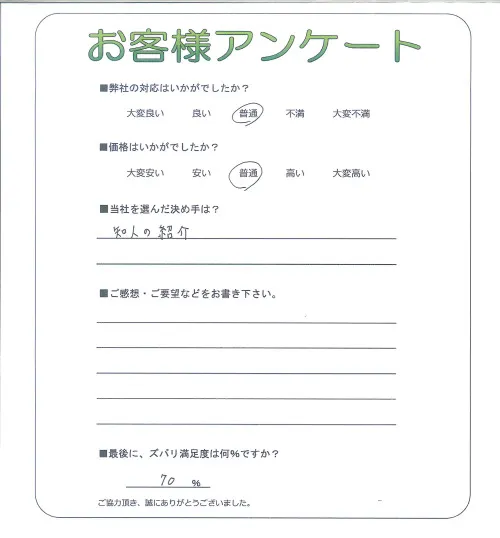 お客様アンケート
■弊社の対応はいかがでしたか？
大変良い 良い 普通 不満 大変不満
■価格はいかがでしたか？
大変安い 安い 普通 高い 大変高い
■当社を選んだ決め手は？
知人の紹介
■ご感想・ご要望などをお書き下さい。
■最後に、ズバリ満足度は何%ですか？
70 %
ご協力頂き、誠にありがとうございました。